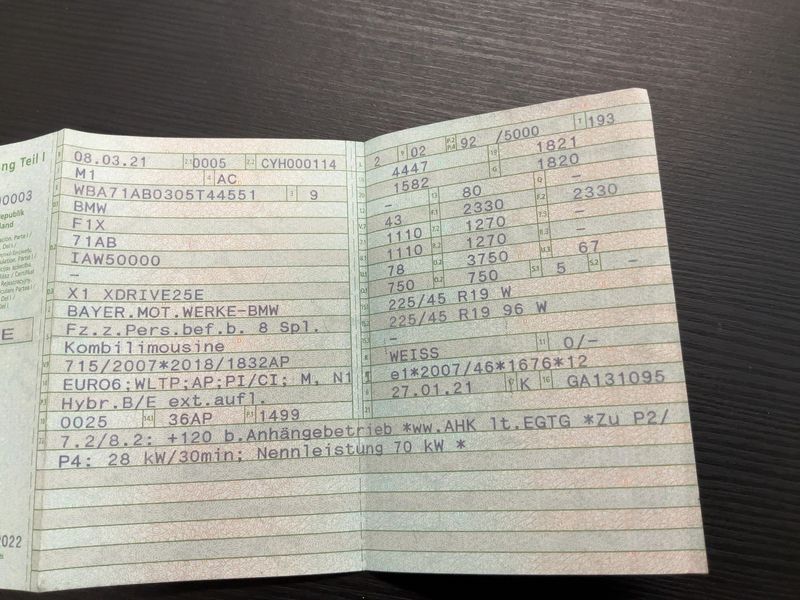 ng Teil I
0003
epublik
land
E
2022
08.03.21 2.1 0005 2.2 CYH000114
M1 4 AC
WBA71AB0305T44551 3 9
BMW
F1X
71AB
IAW50000
–
X1 XDRIVE25E
BAYER.MOT.WERKE-BMW
Fz.z.Pers.bef.b. 8 Spl.
Kombilimousine
715/2007*2018/1832AP
EURO6;WLTP;AP;PI/CI; M, N1
Hybr.B/E ext.aufl.
0025 14.1 36AP P.1 1499
7.2/8.2: +120 b.Anhängebetrieb *ww.AHK lt.EGTG *Zu P2/
P4: 28 kW/30min; Nennleistung 70 kW *
2 9 02 P.2 P.4 92 /5000 T 193
4447 18 1821
1582 G 1820
– 13 80 Q –
43 F.1 2330 F.2 2330
1110 7.2 1270 7.3 –
1110 8.2 1270 –
78 U.2 3750 U.3 67
750 O.2 750 S.1 5 S.2 –
225/45 R19 W
225/45 R19 96 W
–
WEISS 11 0/–
e1*2007/46*1676*12
27.01.21 17 K 16 GA131095